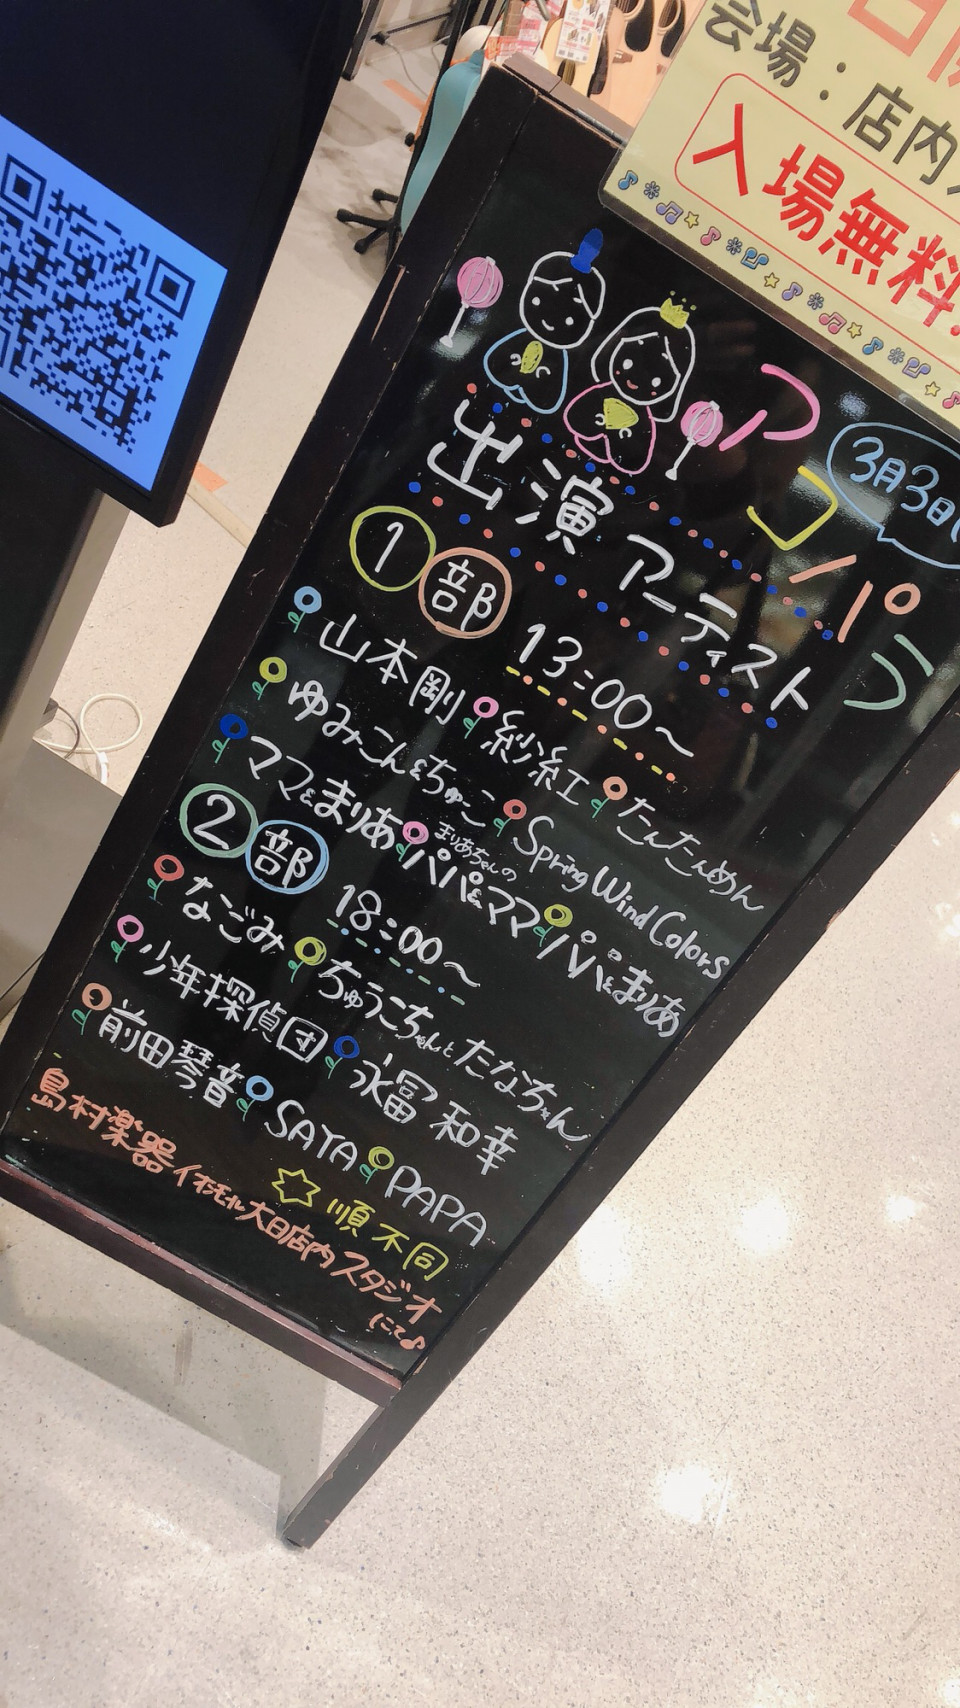 会場：店内
入場無料
アコパラ
3月3日
出演アーティスト
1部 13:00～
山本剛 紗紅 たんたんめん
ゆみこん&ちゅーこ Spring Wind Colors
ママ&まりあ まりあちゃんのパパ&ママ パパ&まりあ
2部 18:00～
なごみ ちゅうこちゃんとたなちゃん
少年探偵団 永冨和幸
前田琴音 SAYA PAPA
順不同
島村楽器イオンモール大日店内スタジオ
にて♪